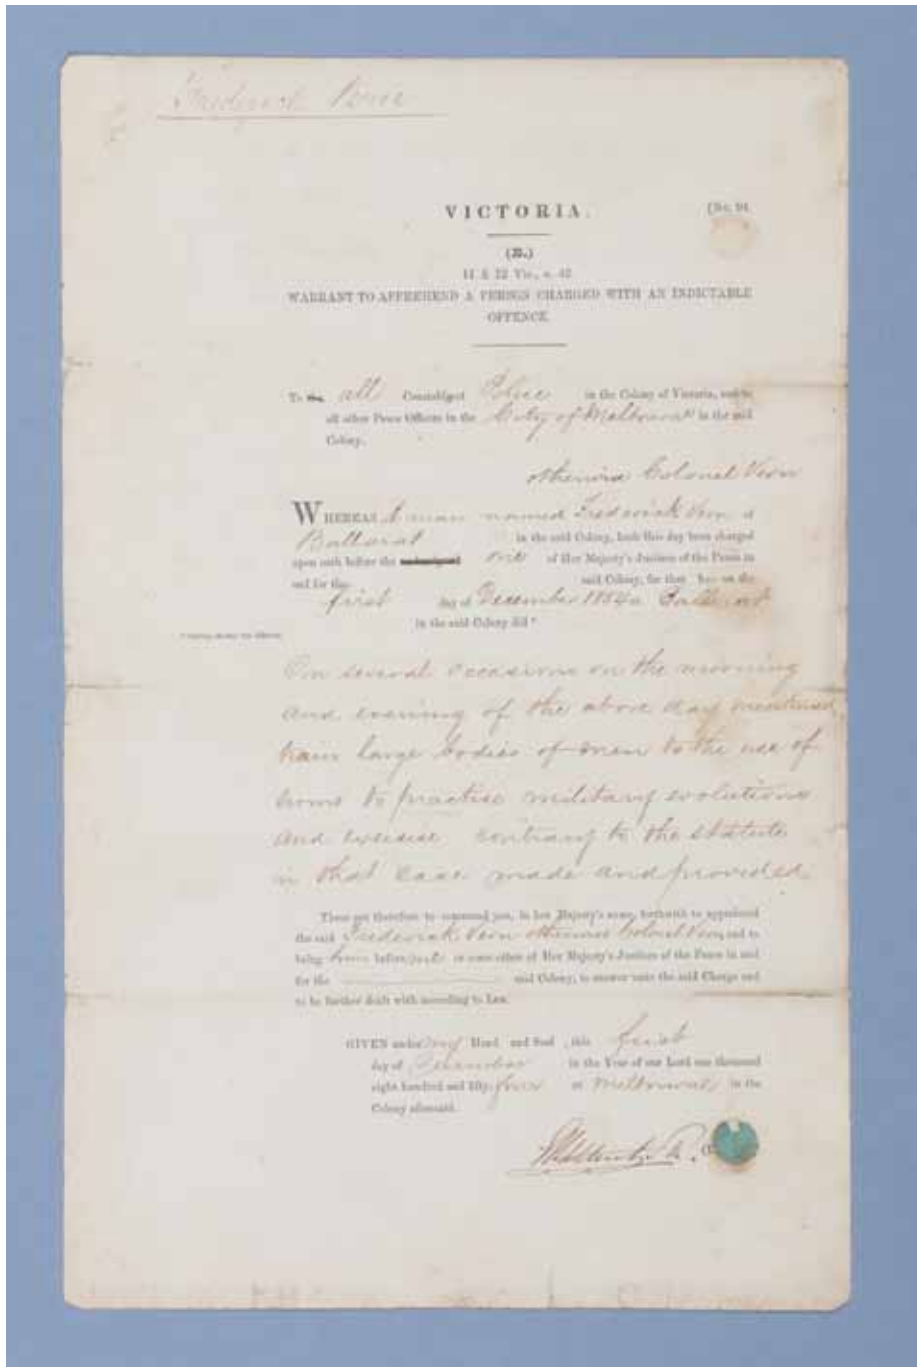 Frederick Vern
VICTORIA.
[No. 94.
(B.)
11 & 12 Vic., c. 42
WARRANT TO APPREHEND A PERSON CHARGED WITH AN INDICTABLE
OFFENCE.
To the all Constables of Police in the Colony of Victoria, and to
all other Peace Officers in the City of Melbourne in the said
Colony.
otherwise Colonel Vern
WHEREAS A man named Frederick Vern of
Ballarat in the said Colony, hath this day been charged
upon oath before the undersigned one of Her Majesty's Justices of the Peace in
and for the said Colony, for that he on the
first day of December 1854 at Ballarat
in the said Colony did *
On several occasions on the morning
and evening of the above day mentioned
train large bodies of men to the use of
arms to practise military evolutions
and exercise contrary to the statute
in that case made and provided
These are therefore to command you, in her Majesty's name, forthwith to apprehend
the said Frederick Vern otherwise Colonel Vern, and to
bring him before me or some other of Her Majesty's Justices of the Peace in and
for the said Colony, to answer unto the said Charge and
to be further dealt with according to Law.
GIVEN under my Hand and Seal, this first
day of December in the Year of our Lord one thousand
eight hundred and fifty four at Melbourne in the
Colony aforesaid.